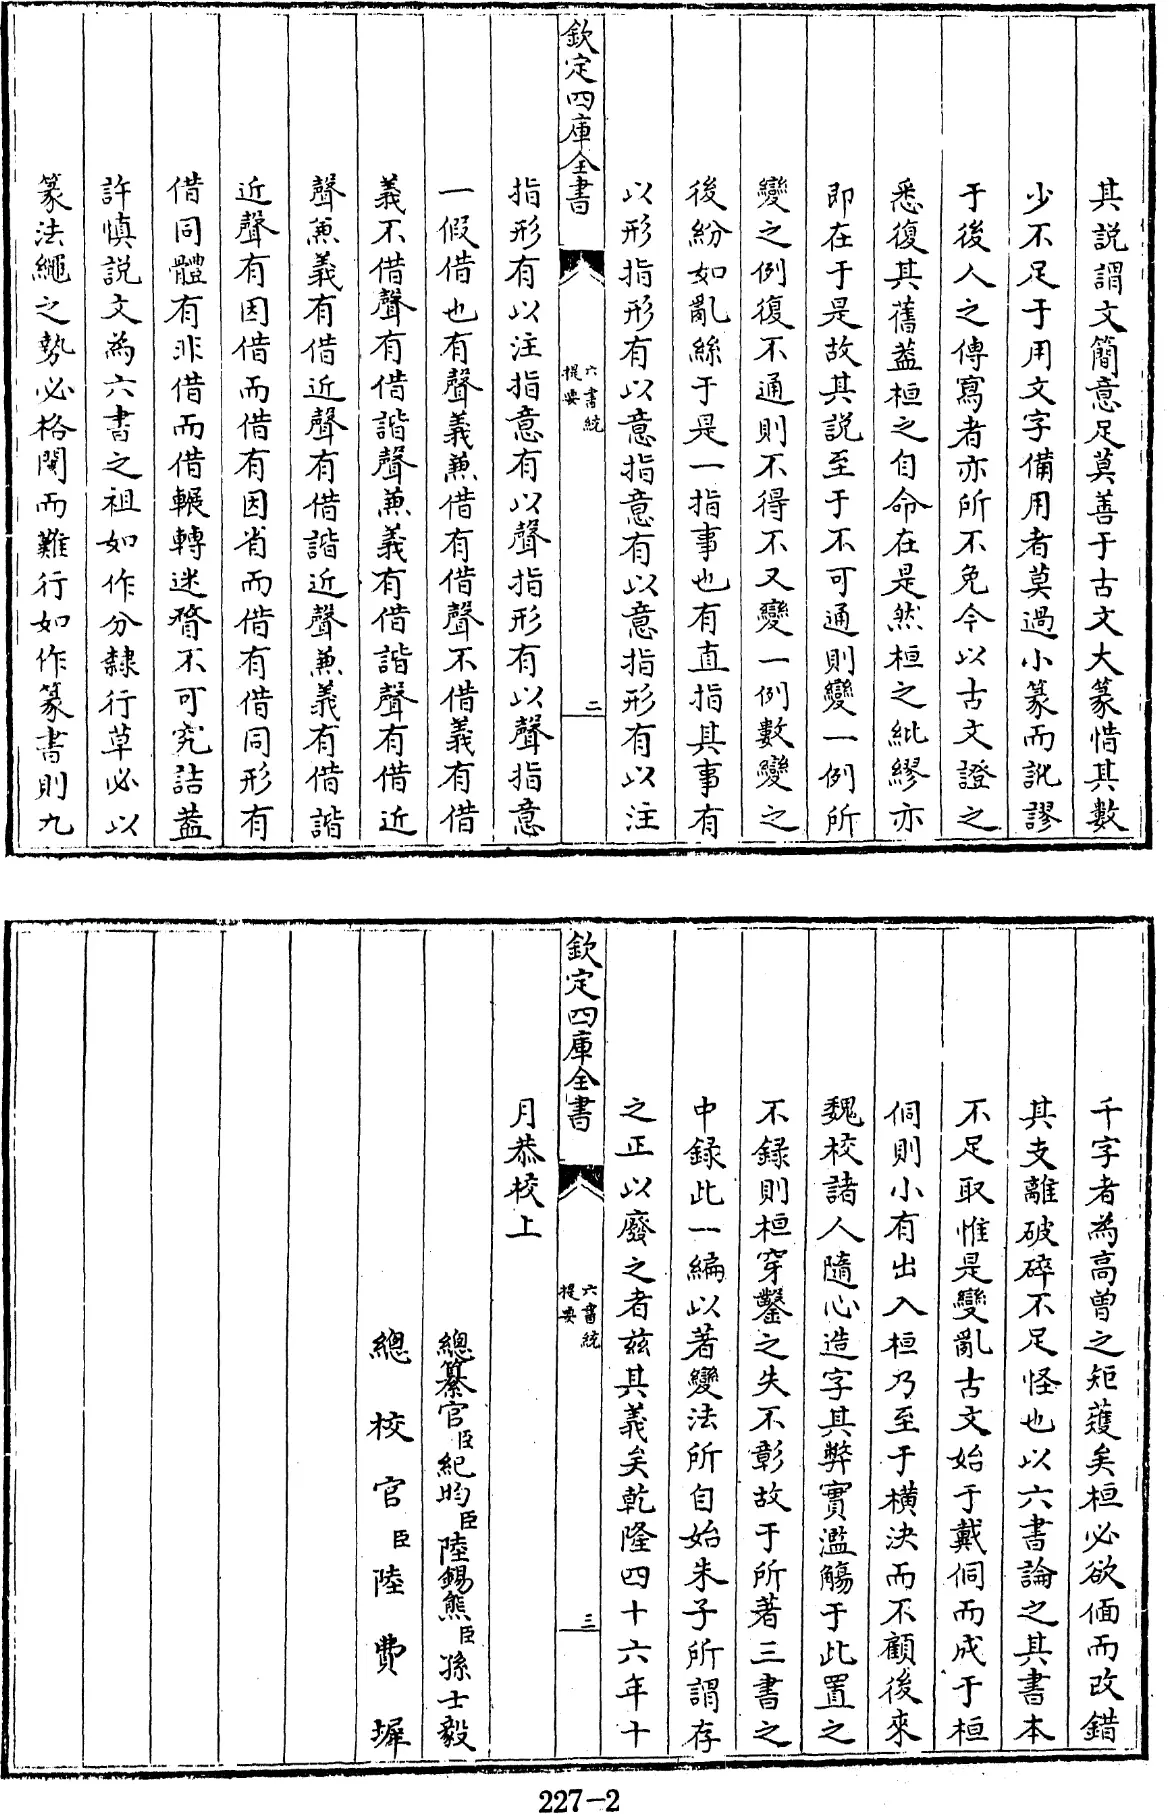 其說謂文簡意足莫善于古文大篆惜其數
少不足于用文字備用者莫過小篆而訛謬
于後人之傳寫者亦所不免今以古文證之
悉復其舊蓋桓之自命在是然桓之紕繆亦
即在于是故其說至于不可通則變一例所
變之例復不通則不得不又變一例數變之
後紛如亂絲于是一指事也有直指其事有
以形指形有以意指意有以意指形有以注
欽定四庫全書
六書統
提要
二
指形有以注指意有以聲指形有以聲指意
一假借也有聲義兼借有借聲不借義有借
義不借聲有借諧聲兼義有借諧聲有借近
聲兼義有借近聲有借諧近聲兼義有借諧
近聲有因借而借有因省而借有借同形有
借同體有非借而借輾轉迷瞀不可究詰蓋
許慎說文為六書之祖如作分隸行草必以
篆法繩之勢必格閡而難行如作篆書則九
千字者為高曾之矩矱矣桓必欲偭而改錯
其支離破碎不足怪也以六書論之其書本
不足取惟是變亂古文始于戴侗而成于桓
侗則小有出入桓乃至于橫決而不顧後來
魏校諸人隨心造字其弊實濫觴于此置之
不録則桓穿鑿之失不彰故于所著三書之
中録此一編以著變法所自始朱子所謂存
之正以廢之者茲其義矣乾隆四十六年十
欽定四庫全書
六書統
提要
三
月恭校上
總纂官臣紀昀臣陸錫熊臣孫士毅
總校官臣陸費墀
227-2